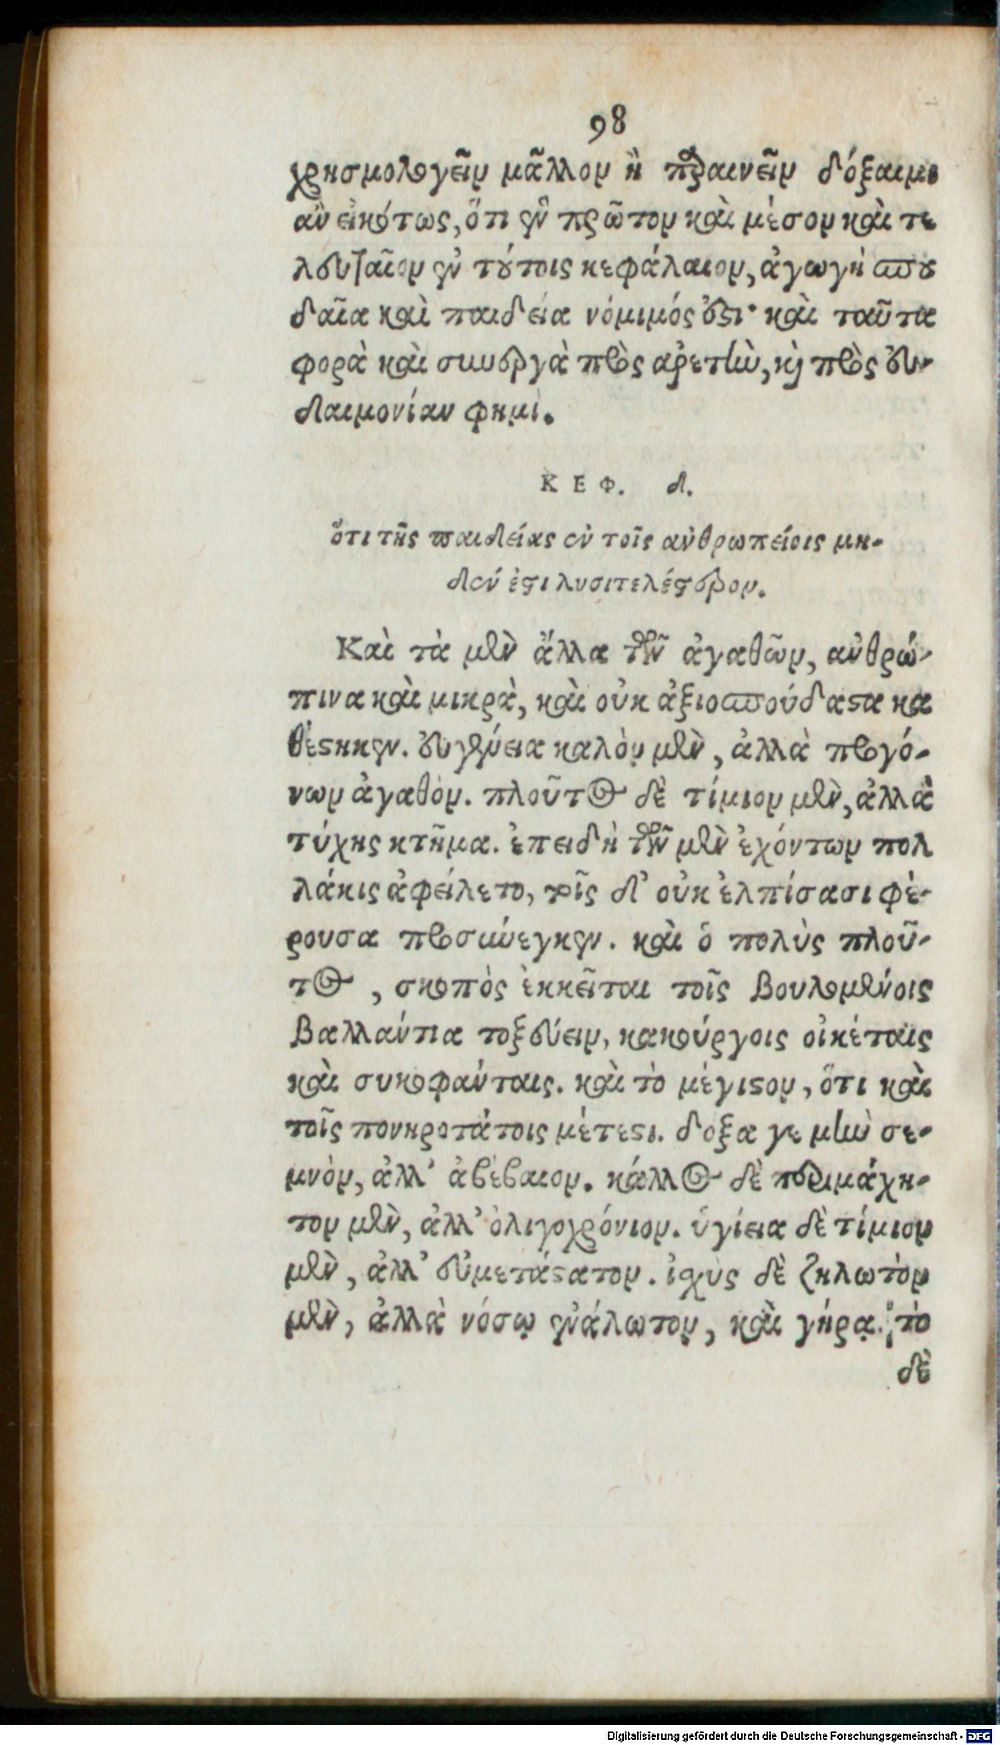 98
χρησμολογεῖν μᾶλλον ἢ παραινεῖν δόξαιμι
ἂν εἰκότως, ὅτι ἓν πρῶτον καὶ μέσον καὶ τε
λευταῖον ἐν τούτοις κεφάλαιον, ἀγωγὴ σπου
δαῖα καὶ παιδεία νόμιμός ἐστι· καὶ ταῦτα
φορὰ καὶ συνεργὰ πρὸς ἀρετὴν, καὶ πρὸς εὐ-
δαιμονίαν φημί.
ΚΕΦ. δ.
ὅτι τῆς παιδείας ἐν τοῖς ἀνθρωπείοις μη-
δέν ἐστι λυσιτελέστερον.
Καὶ τὰ μὲν ἄλλα τῶν ἀγαθῶν, ἀνθρώ-
πινα καὶ μικρὰ, καὶ οὐκ ἀξιοσπούδαστα κα
θέστηκεν. εὐγένεια καλὸν μὲν, ἀλλὰ προγό-
νων ἀγαθόν. πλοῦτος δὲ τίμιον μὲν, ἀλλὰ
τύχης κτῆμα. ἐπειδὴ τῶν μὲν ἐχόντων πολ
λάκις ἀφείλετο, τοῖς δ' οὐκ ἐλπίσασι φέ-
ρουσα προσήνεγκεν. καὶ ὁ πολὺς πλοῦ-
τος, σκοπὸς ἐκκεῖται τοῖς βουλομένοις
βαλλάντια τοξεύειν, κακούργοις οἰκέταις
καὶ συκοφάνταις. καὶ τὸ μέγιστον, ὅτι καὶ
τοῖς πονηροτάτοις μέτεστι. δοξα γε μὴν σε-
μνὸν, ἀλλ' ἀβέβαιον. κάλλος δὲ περιμάχη-
τον μὲν, ἀλλ' ὀλιγοχρόνιον. ὑγίεια δὲ τίμιον
μὲν, ἀλλ' εὐμετάστατον. ἰσχὺς δὲ ζηλωτὸν
μὲν, ἀλλὰ νόσῳ εὐάλωτον, καὶ γήρᾳ. τὸ
δὲ
Digitalisierung gefördert durch die Deutsche Forschungsgemeinschaft - DFG